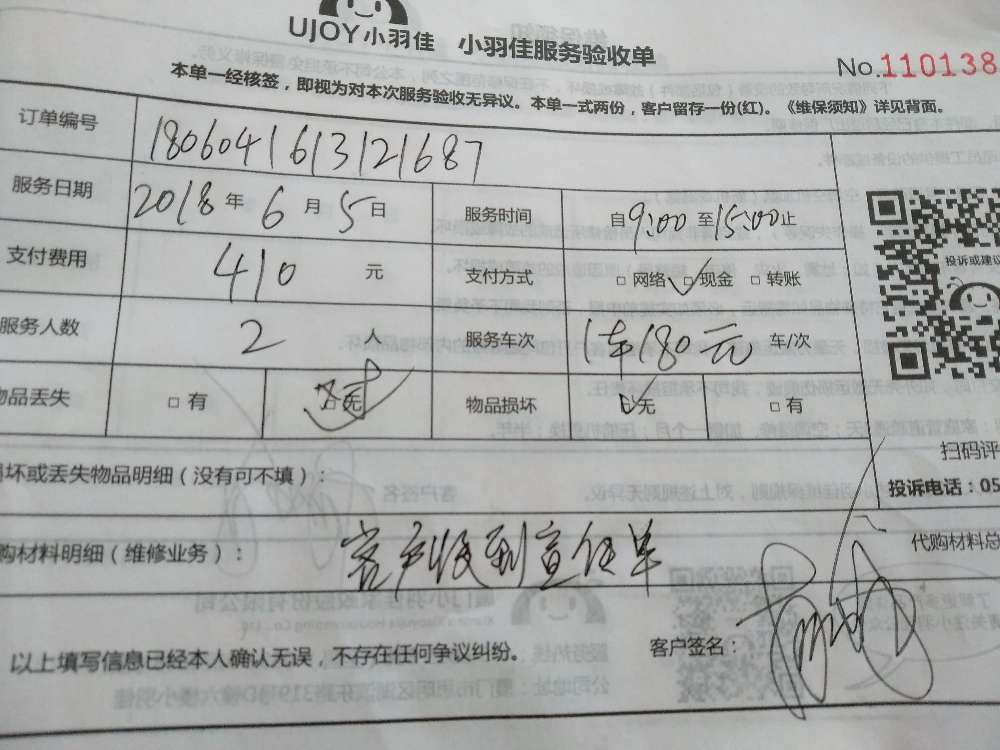 UJOY小羽佳 小羽佳服务验收单
No.110138
本单一经核签，即视为对本次服务验收无异议。本单一式两份，客户留存一份(红)。《维保须知》详见背面。
订单编号 1806041613121687
服务日期 2018年6月5日 服务时间 自9:00至15:00止
投诉或建议
支付费用 410元 支付方式 □网络 □现金 □转账
服务人数 2人 服务车次 1车180元 车/次
物品丢失 □有 □无 物品损坏 □无 □有
扫码评
坏或丢失物品明细（没有可不填）：
投诉电话：05
购材料明细（维修业务）：
代购材料总
以上填写信息已经本人确认无误，不存在任何争议纠纷。 客户签名：